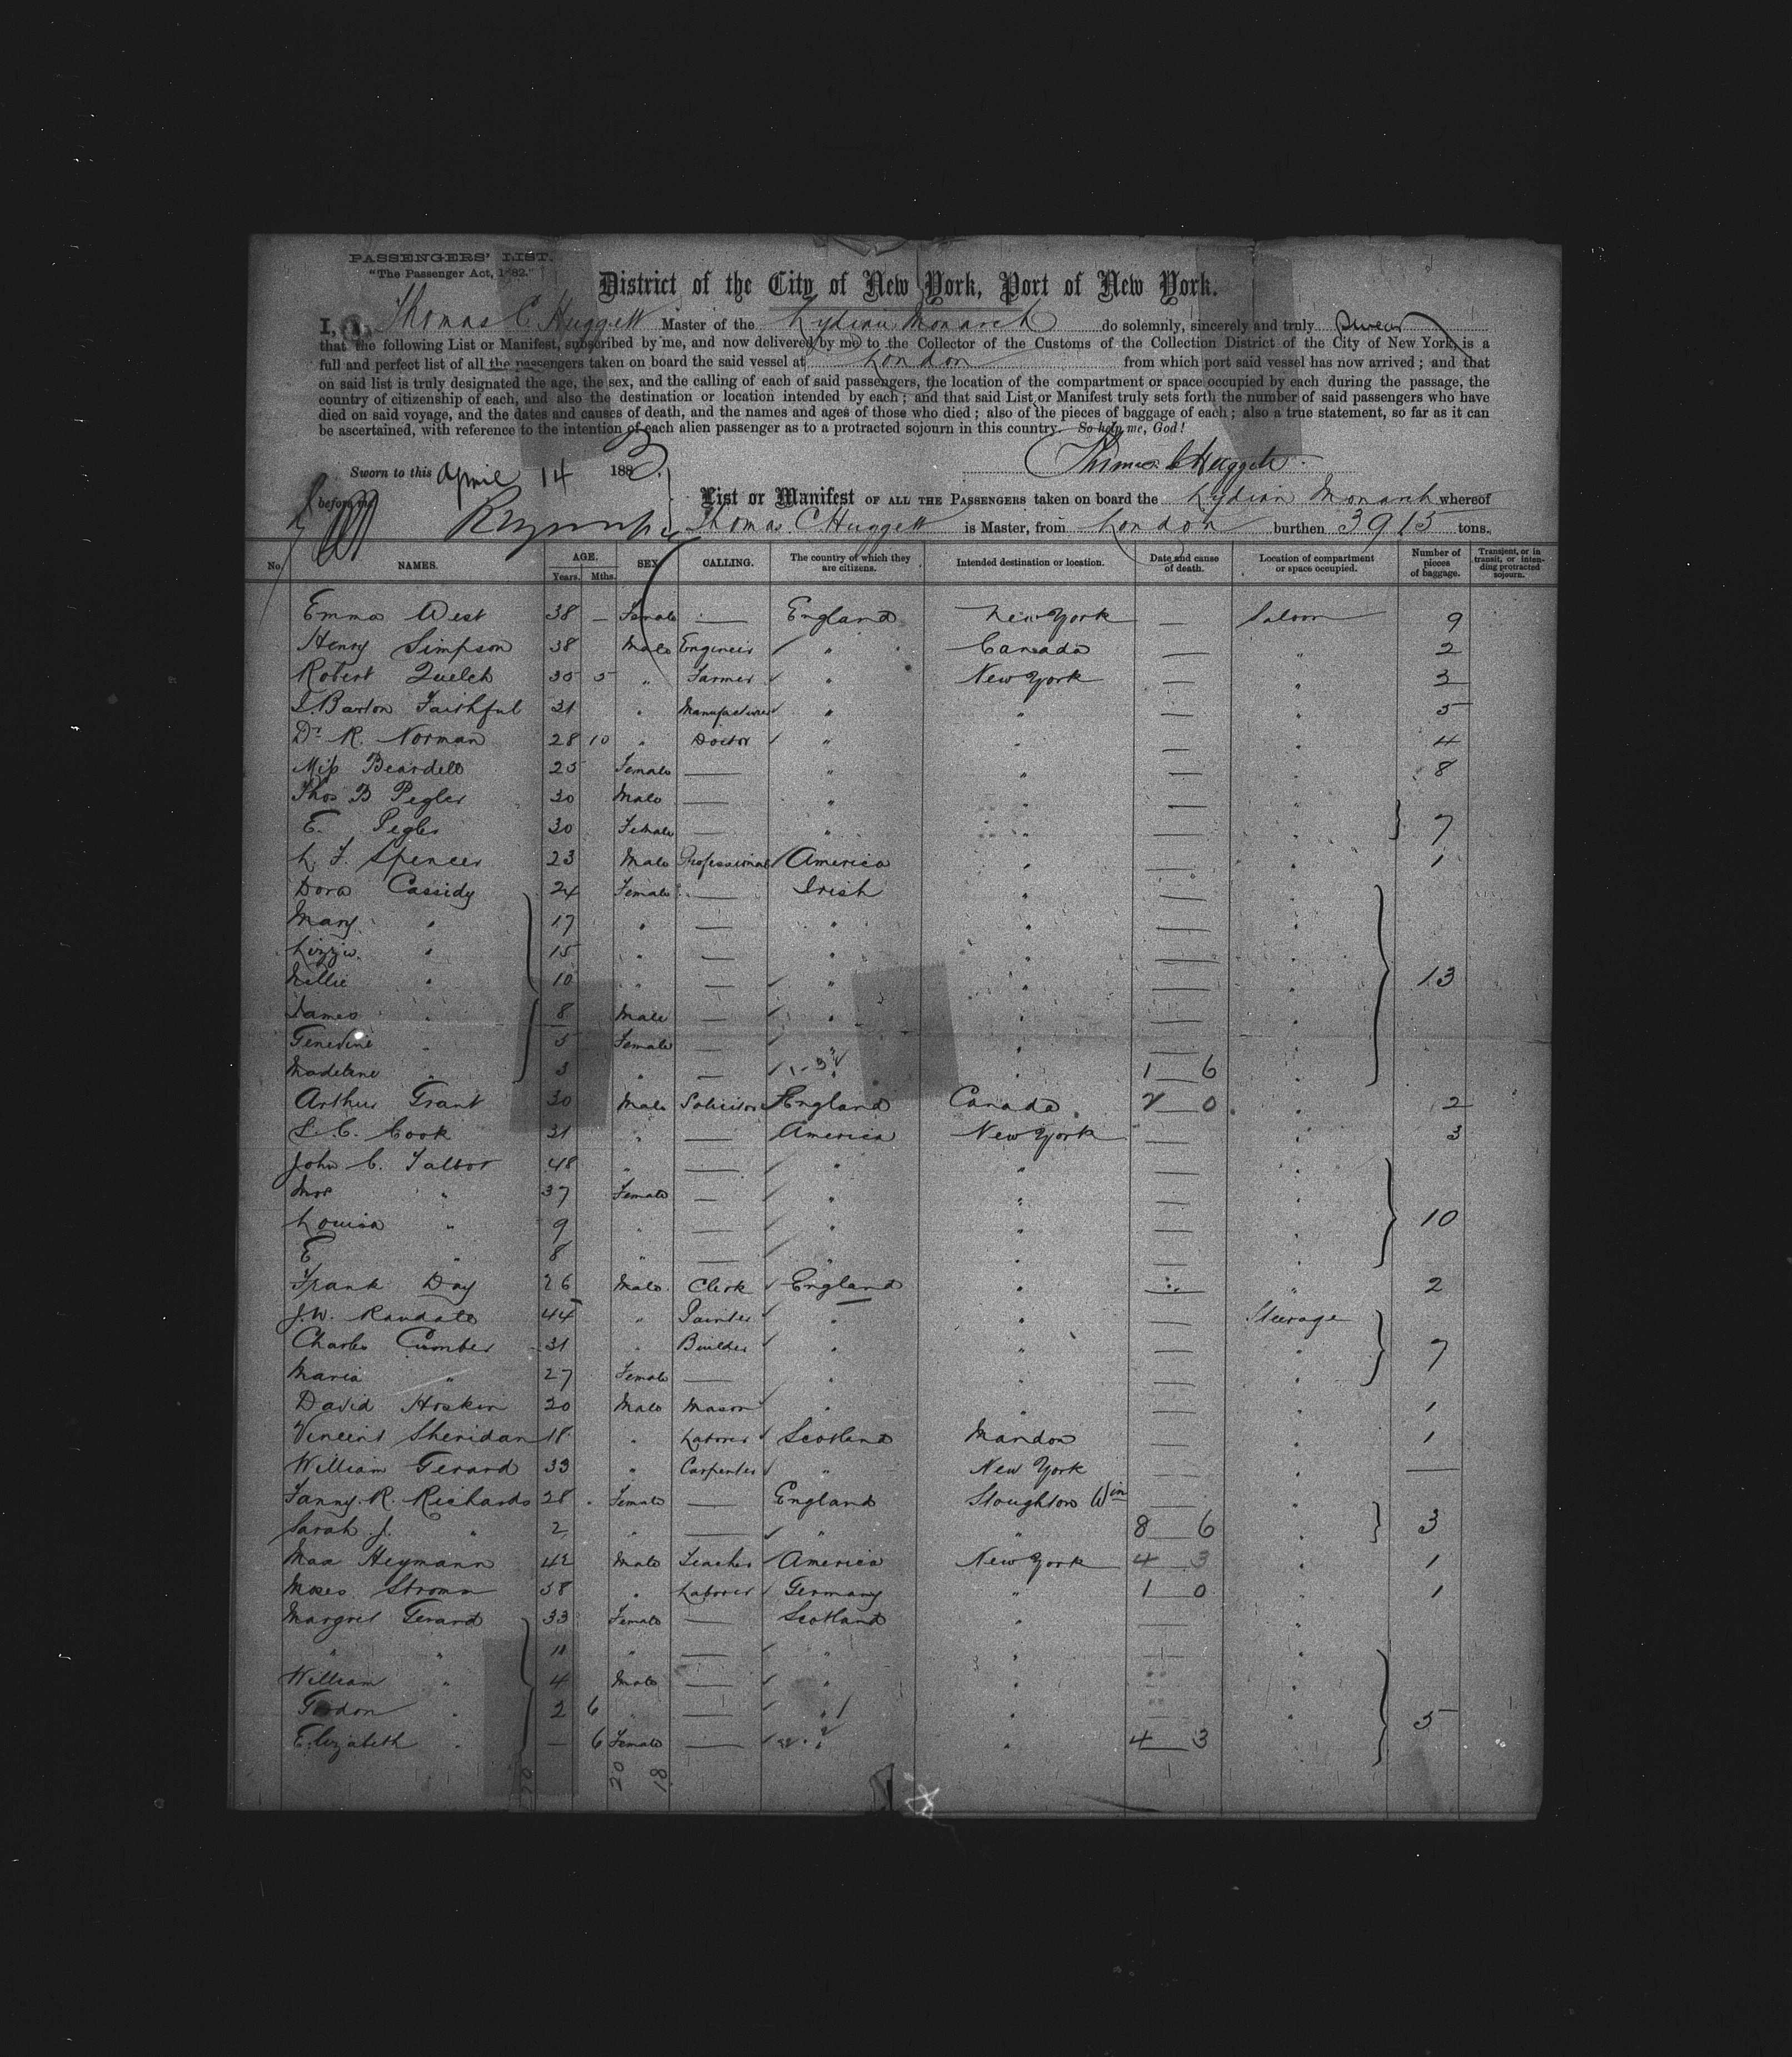 PASSENGERS' LIST.
"The Passenger Act, 1882."
District of the City of New York, Port of New York.
I, Thomas C Huggett Master of the Lydian Monarch do solemnly, sincerely and truly swear
that the following List or Manifest, subscribed by me, and now delivered by me to the Collector of the Customs of the Collection District of the City of New York, is a
full and perfect list of all the passengers taken on board the said vessel at London from which port said vessel has now arrived; and that
on said list is truly designated the age, the sex, and the calling of each of said passengers, the location of the compartment or space occupied by each during the passage, the
country of citizenship of each, and also the destination or location intended by each; and that said List or Manifest truly sets forth the number of said passengers who have
died on said voyage, and the dates and causes of death, and the names and ages of those who died; also of the pieces of baggage of each; also a true statement, so far as it can
be ascertained, with reference to the intention of each alien passenger as to a protracted sojourn in this country. So help me, God!
Sworn to this April 14 1883. Thomas C Huggett
before me
List or Manifest OF ALL THE PASSENGERS taken on board the Lydian Monarch whereof
Thomas C Huggett is Master, from London burthen 3915 tons.
No. NAMES. AGE. Years. Mths. SEX. CALLING. The country of which they are citizens. Intended destination or location. Date and cause of death. Location of compartment or space occupied. Number of pieces of baggage. Transient, or in transit, or intending protracted sojourn.
Emma West 38 — Female — England New York — Saloon 9
Henry Simpson 38 Male Engineer " Canada — " 2
Robert Quelch 35 5 " Farmer " New York — " 3
Barton Faithful 31 " Manufacturer " " — " 5
Dr R. Norman 28 10 " Doctor " " — " 4
Miss Beardell 25 Female — " " — " 8
Thos B Pegler 30 Male — " " — "
E. Pegler 30 Female — " " — " 7
L. F. Spencer 23 Male Professional America " — " 1
Dora Cassidy 24 Female — Irish " — "
Mary " 17 " — " " — "
Lizzie " 15 " — " " — "
Nellie " 10 " — " " — " 13
James " 8 Male — " " — "
Genevine " 5 Female — " " — "
Madeline " 3 " — " " 1 6 "
Arthur Grant 30 Male Solicitor England Canada 2 0 " 2
S. C. Cook 31 " — America New York — " 3
John C. Talbot 48 " — " " — "
Mrs " 37 Female — " " — "
Louisa " 9 " — " " — " 10
E " 8 " — " " — "
Frank Day 26 Male Clerk England " — " 2
J. W. Randall 44 " Painter " " — Steerage
Charles Comber 31 " Builder " " — " 7
Maria " 27 Female — " " — "
David Hoskin 20 Male Mason " " — " 1
Vincent Sheridan 18 " Laborer Scotland Mandon — " 1
William Gerard 33 " Carpenter " New York — " —
Fanny R. Richards 28 Female — England Stoughton Win — "
Sarah J. " 2 " — " " 8 6 " 3
Max Heymann 42 Male Teacher America New York 4 3 " 1
Moses Stromm 38 " Laborer Germany " 1 0 " 1
Margret Gerard 33 Female — Scotland " — "
" " 11 " — " " — "
William " 4 Male — " " "
Gordon " 2 6 " — " " " 5
Elizabeth " — 6 Female — " " 4 3 "
20 18